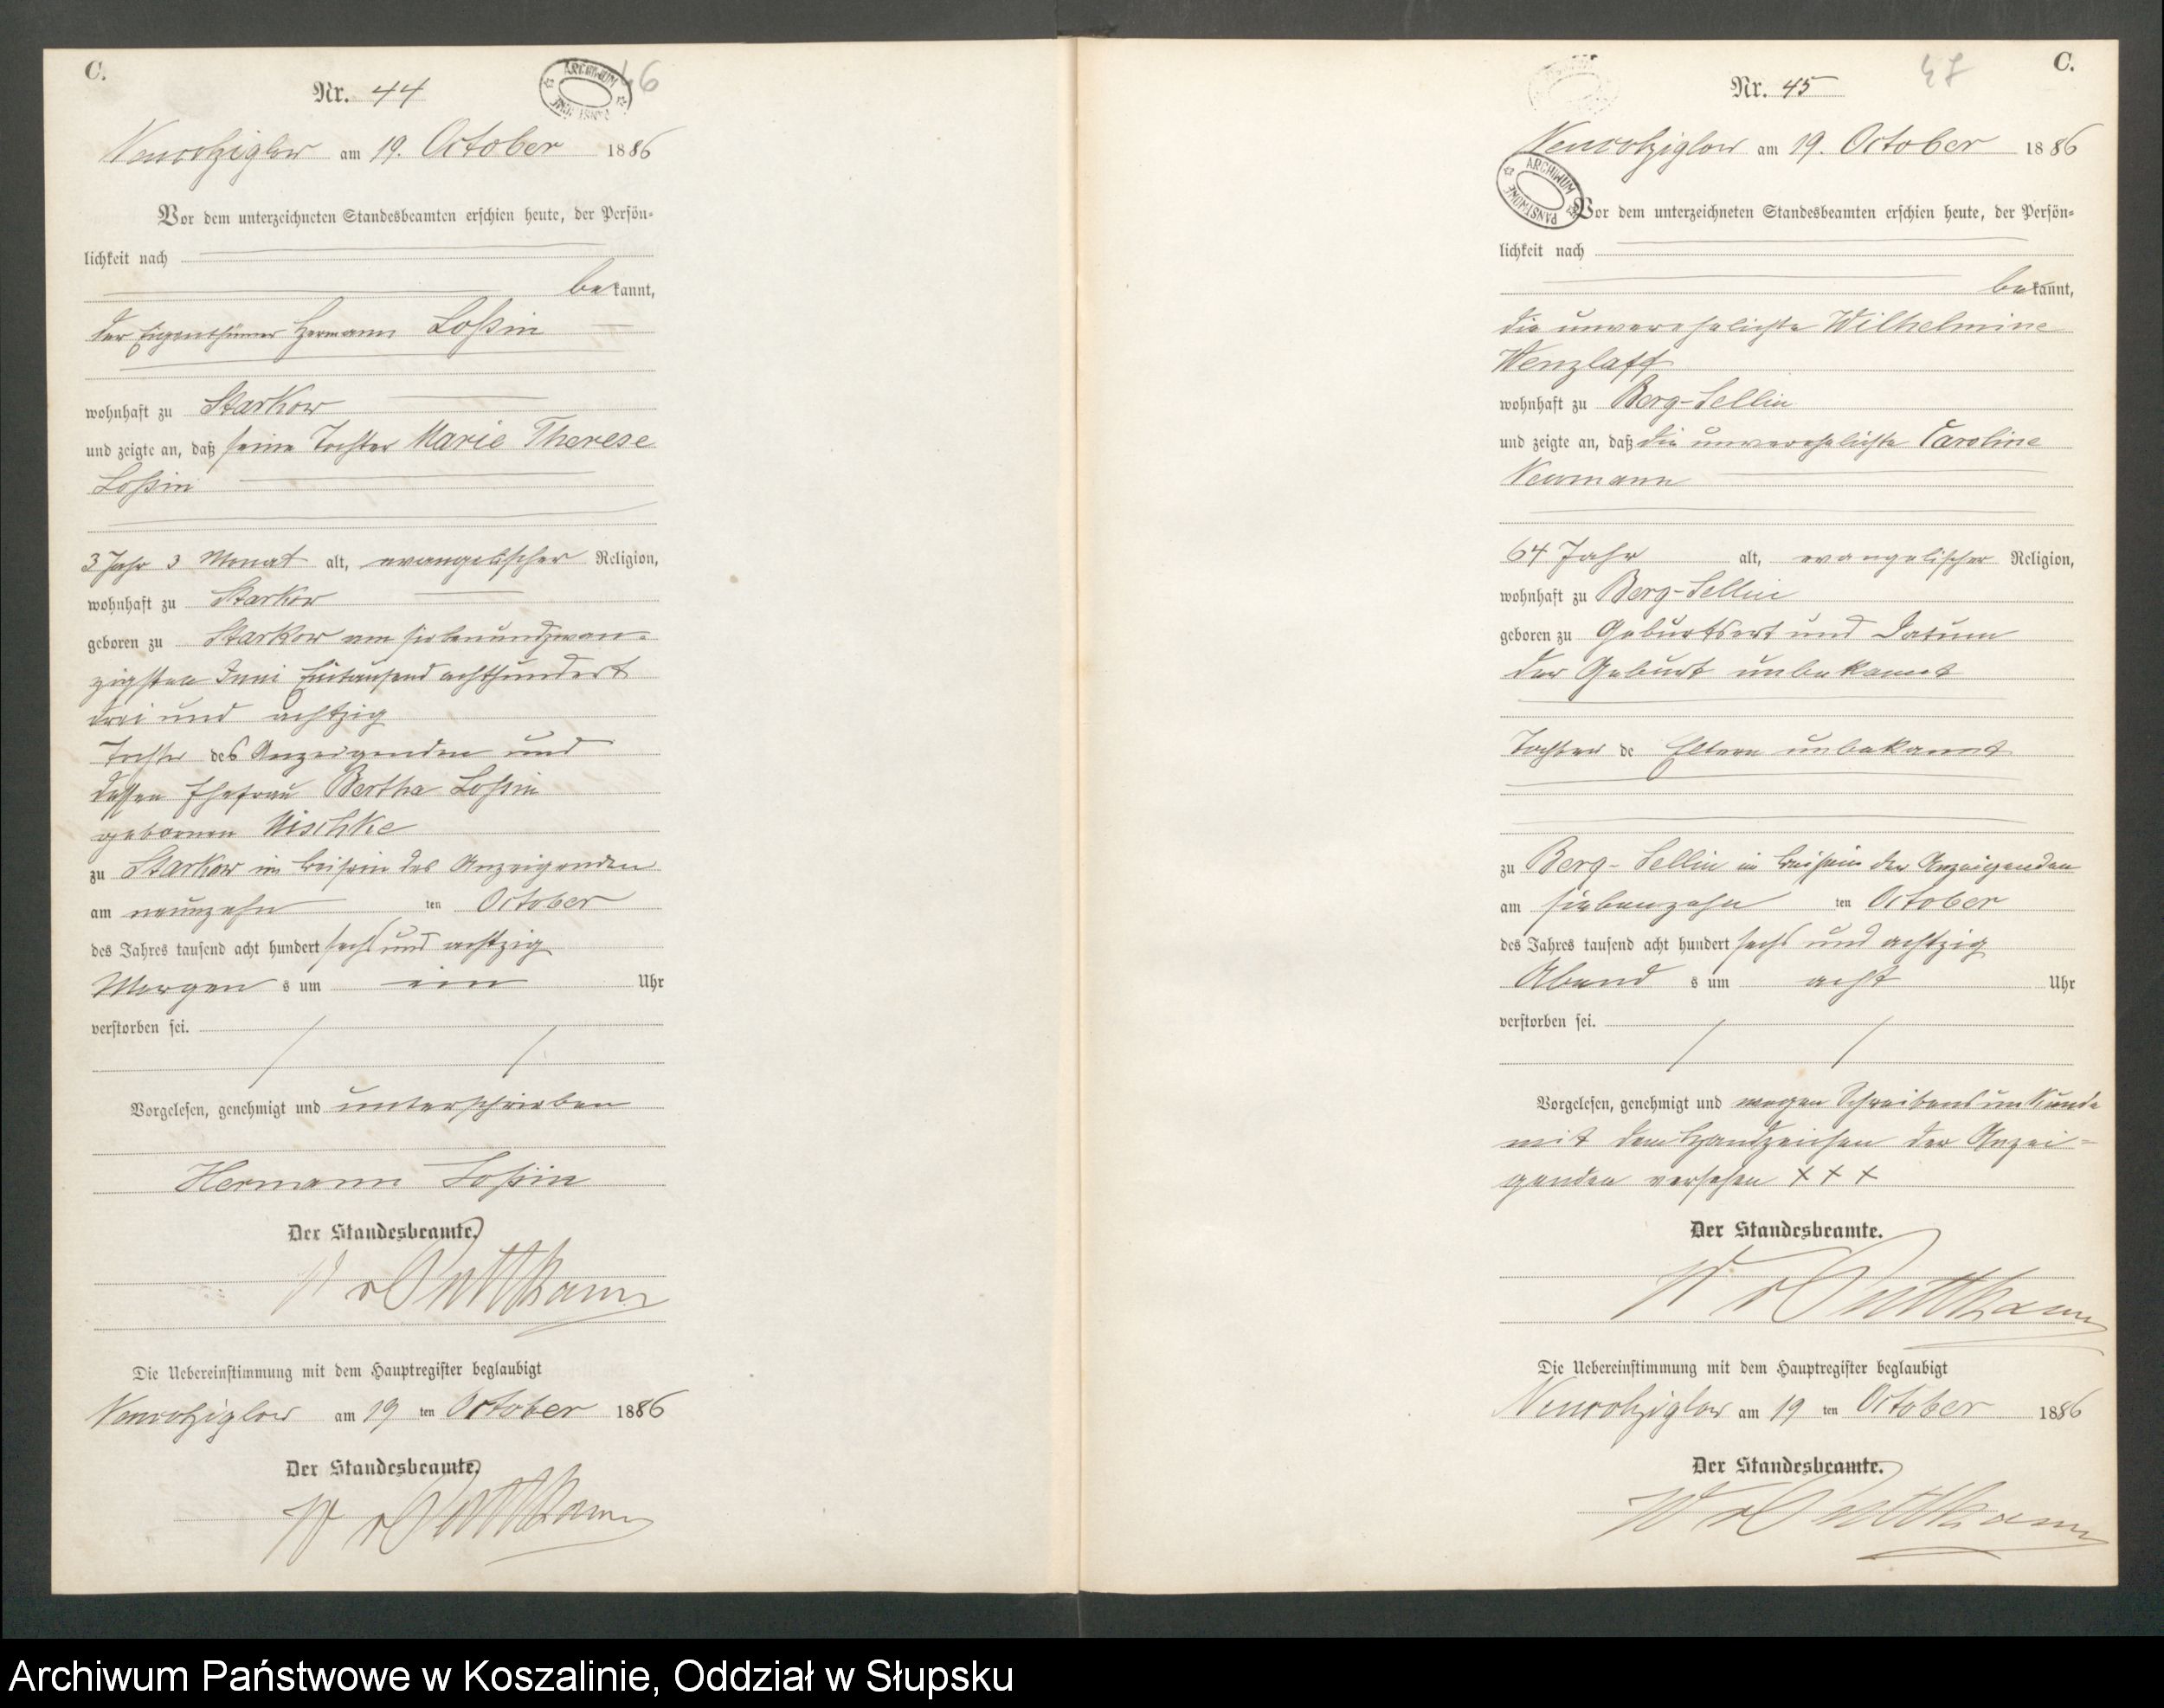 C.
46
Nr. 44
ARCHIWUM
Neuwohziglow am 19. October 1886
Vor dem unterzeichneten Standesbeamten erschien heute, der Persön-
lichkeit nach
bekannt,
der Eigenthümer Hermann Loßin
wohnhaft zu Starkow
und zeigte an, daß seine Tochter Marie Therese
Loßin
3 Jahr 3 Monat alt, evangelischer Religion,
wohnhaft zu Starkow
geboren zu Starkow am siebenundzwan-
zigsten Juni Eintausend achthundert
drei und achtzig
Tochter des Anzeigenden und
dessen Ehefrau Bertha Loßin
geborenen Nischke
zu Starkow im Beisein des Anzeigenden
am neunzehn ten October
des Jahres tausend acht hundert sechs und achtzig
Morgen s um ein Uhr
verstorben sei.
Vorgelesen, genehmigt und unterschrieben
Hermann Loßin
Der Standesbeamte.
W v Puttkamer
Die Uebereinstimmung mit dem Hauptregister beglaubigt
Neuwohziglow am 19 ten October 1886
Der Standesbeamte.
W v Puttkamer
47
C.
Nr. 45
Neuwohziglow am 19. October 1886
ARCHIWUM PAŃSTWOWE
Vor dem unterzeichneten Standesbeamten erschien heute, der Persön-
lichkeit nach
bekannt,
die unverehelichte Wilhelmine
Wenzlaff
wohnhaft zu Berg-Sellin
und zeigte an, daß die unverehelichte Caroline
Neumann
64 Jahr alt, evangelischer Religion,
wohnhaft zu Berg-Sellin
geboren zu Geburtsort und Datum
der Geburt unbekannt
Tochter de Eltern unbekannt
zu Berg-Sellin im Beisein der Anzeigenden
am siebenzehn ten October
des Jahres tausend acht hundert sechs und achtzig
Abend s um acht Uhr
verstorben sei.
Vorgelesen, genehmigt und wegen Schreibensunkunde
mit dem Handzeichen der Anzei-
genden versehen + + +
Der Standesbeamte.
W v Puttkamer
Die Uebereinstimmung mit dem Hauptregister beglaubigt
Neuwohziglow am 19 ten October 1886
Der Standesbeamte.
W v Puttkamer
Archiwum Państwowe w Koszalinie, Oddział w Słupsku